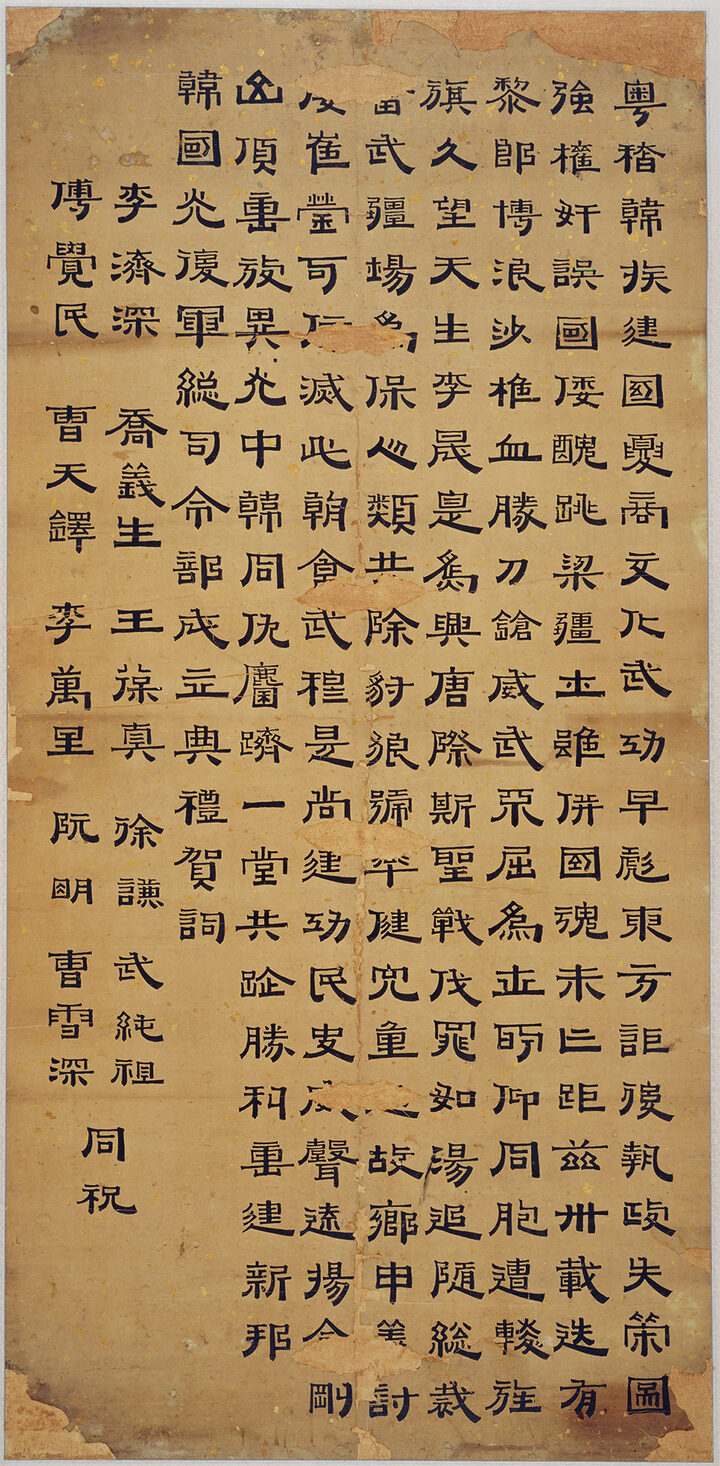 粤稽韓族建國夏商文化武功早彪東方詎後執政失策圖
強權奸誤國倭醜跳梁疆土雖併國魂未亡距茲卅載迭有
黎郎博浪沙椎血勝刀鎗威武屈爲世所仰同胞遭旌
旗久望天生李晟是爲興唐際斯聖戰伐罪如湯追隨總裁
武疆場爲保人類共除豺狼號平健兒重故鄉申義討
崔瑩可滅此朝食武穆是尚建功民史威聲遠揚金剛
山頂重放異光中韓同仇麕躋一堂共企勝利重建新邦
韓國光復軍總司令部成立典禮賀詞
李濟深 喬義生 王葆真 徐謙 武純祖
傅覺民 曹天鐸 李萬里 阮明 曹雪深
同祝